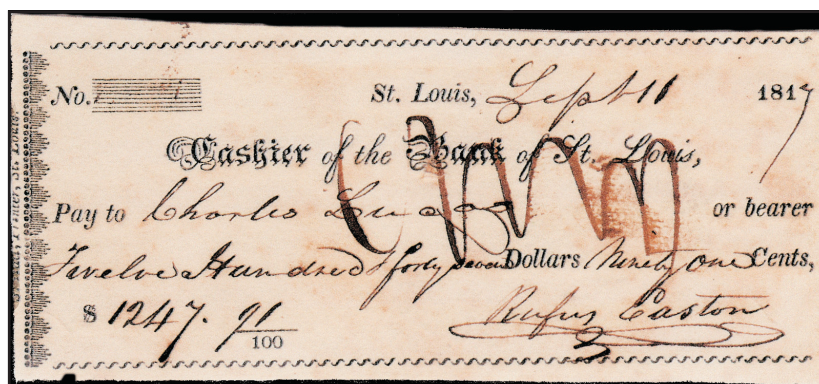 No.
St. Louis, Sept 11 1817
Cashier of the Bank of St. Louis,
Pay to Charles Lucas or bearer
Twelve Hundred & forty seven Dollars Ninety one Cents,
$ 1247. 91/100
Rufus Easton